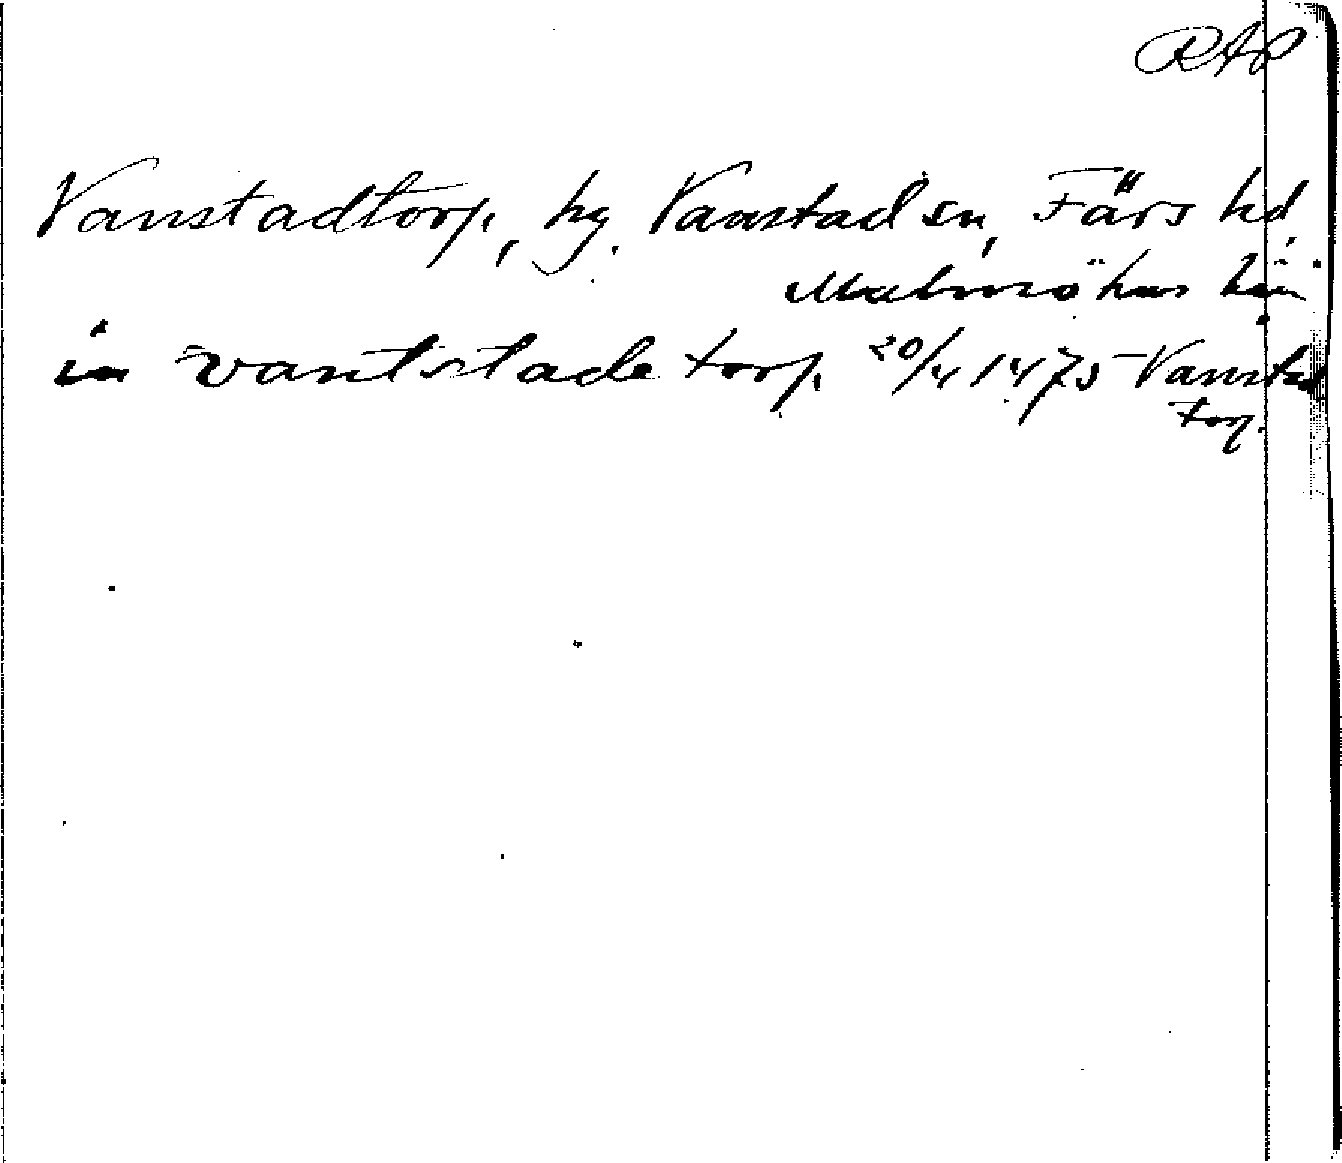 RAP
Vanstadtorp, by. Vanstad sn, Färs hd,
Malmöhus län
in vantstade torp 20/4 1475 Vanstad
torp.